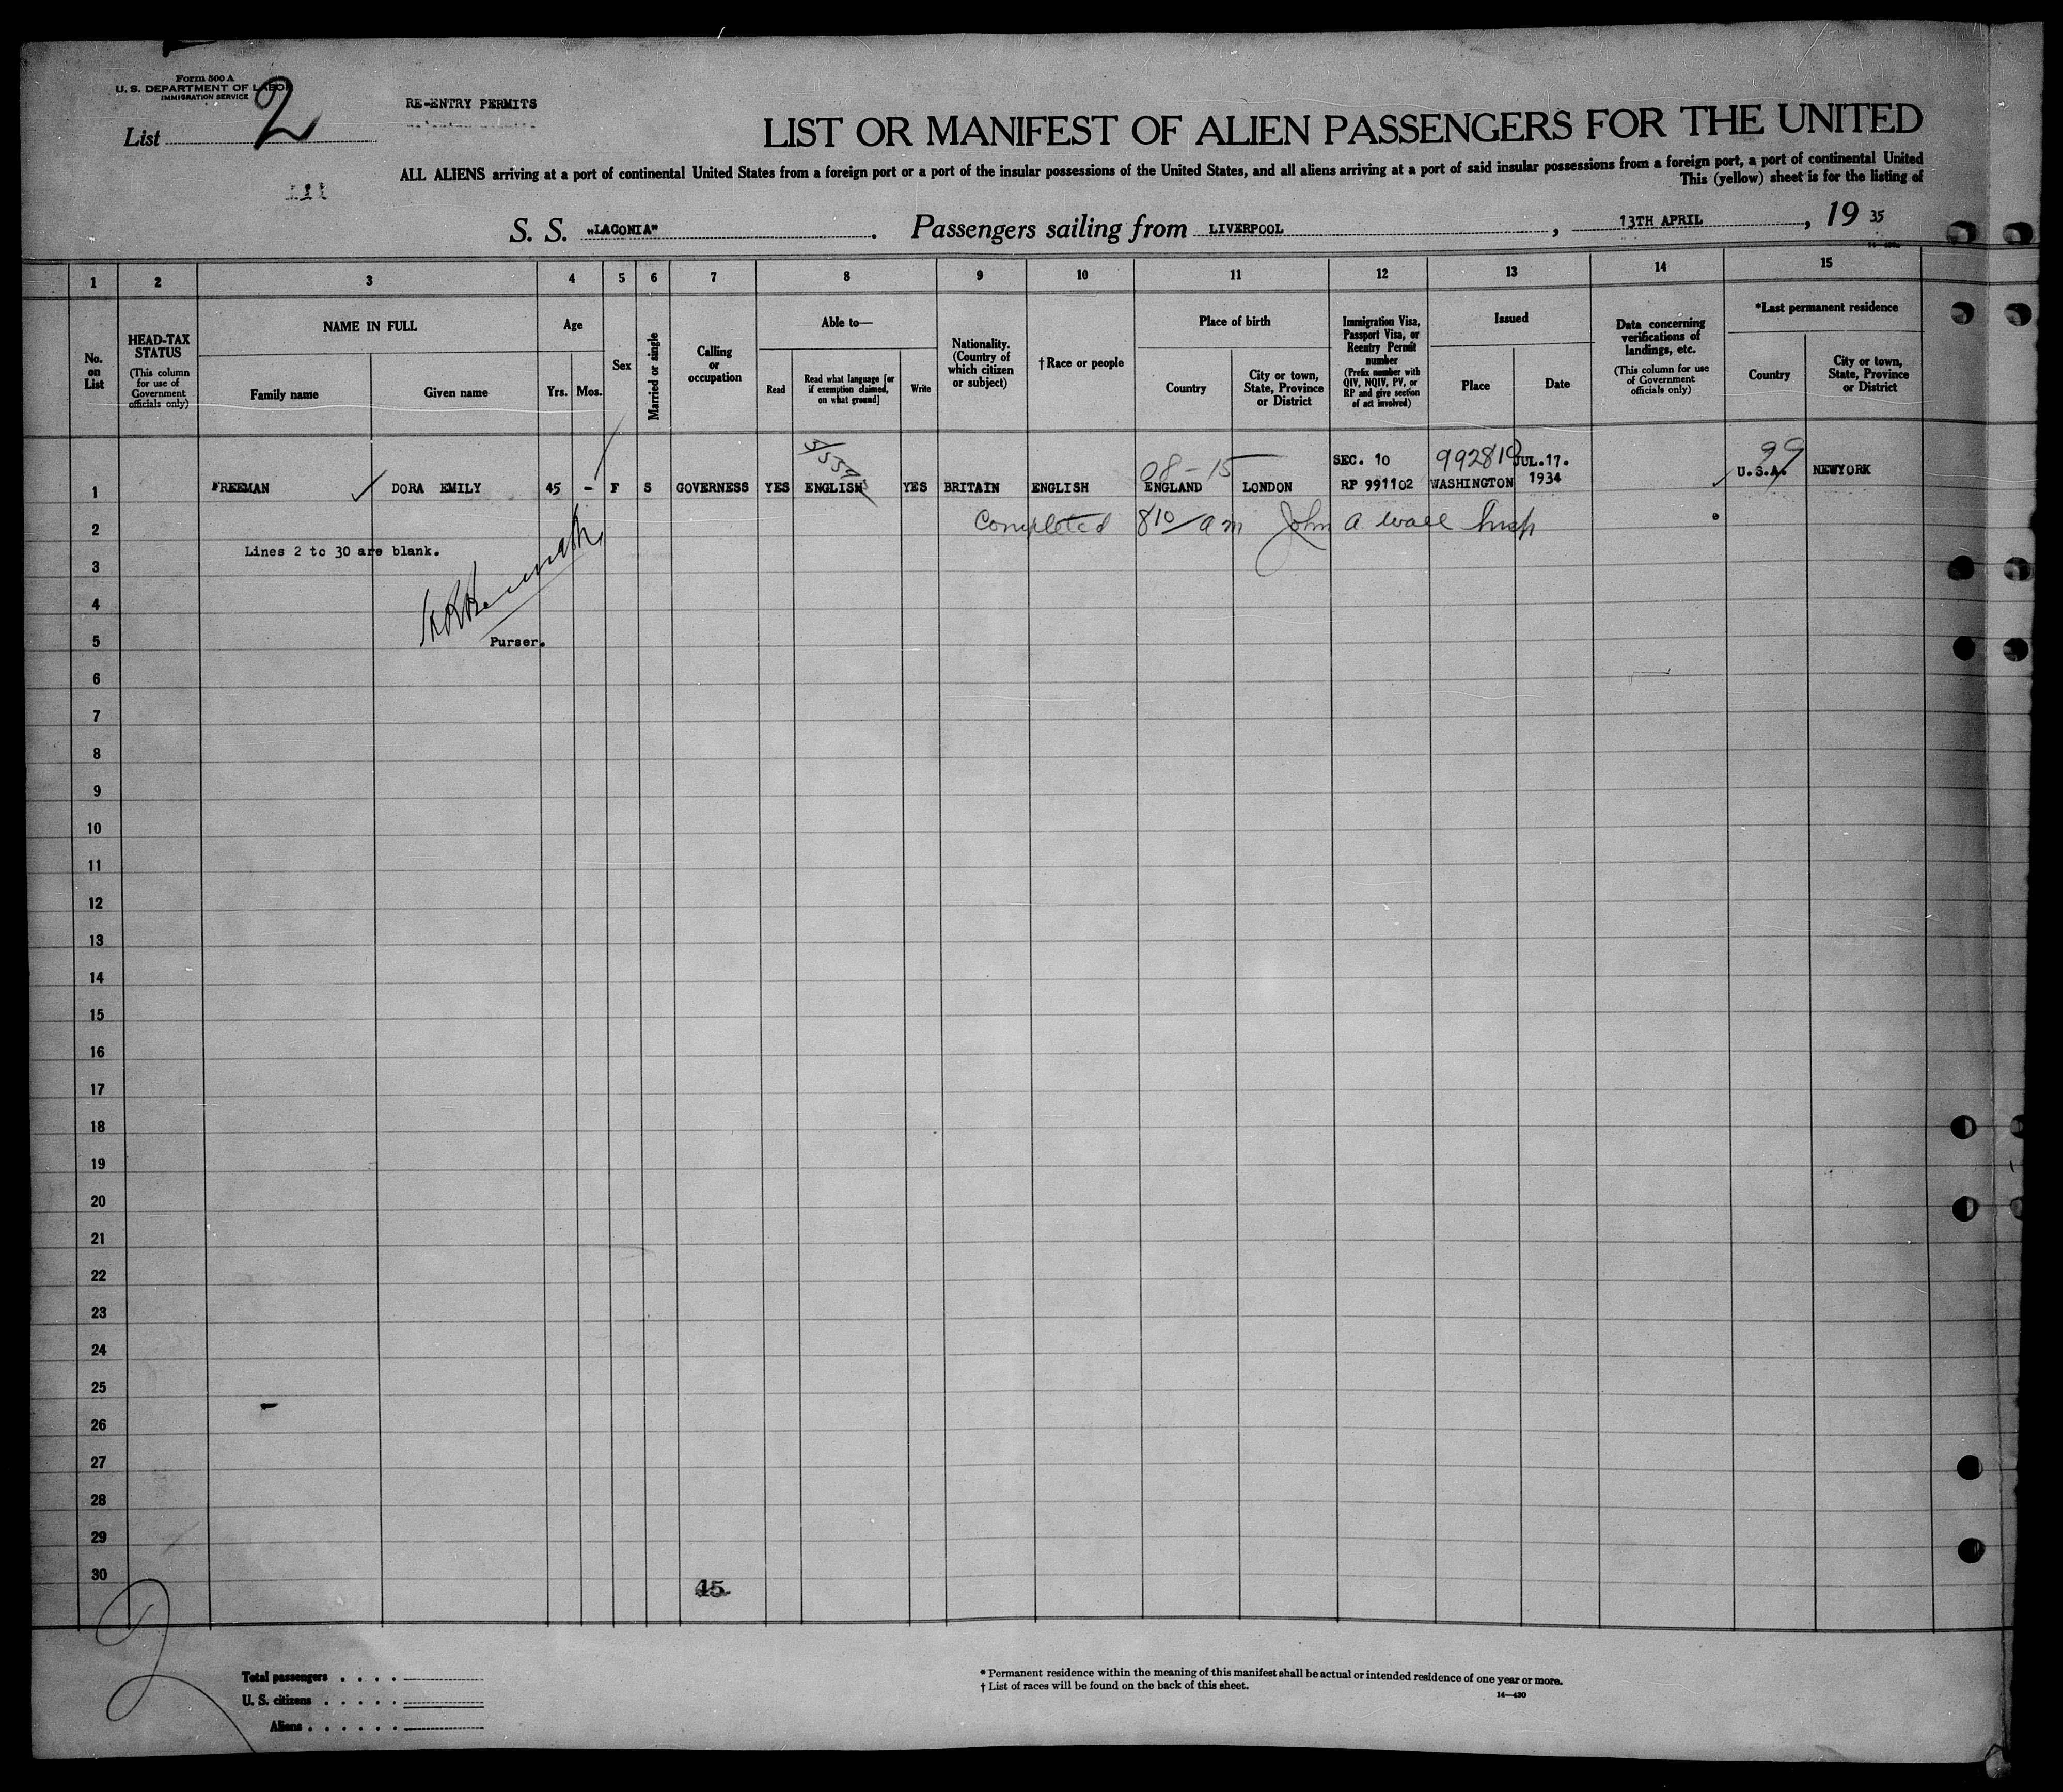 Form 500 A
U. S. DEPARTMENT OF LABOR
IMMIGRATION SERVICE
List 2
RE-ENTRY PERMITS
LIST OR MANIFEST OF ALIEN PASSENGERS FOR THE UNITED
ALL ALIENS arriving at a port of continental United States from a foreign port or a port of the insular possessions of the United States, and all aliens arriving at a port of said insular possessions from a foreign port, a port of continental United
This (yellow) sheet is for the listing of
S. S. "LACONIA". Passengers sailing from LIVERPOOL, 13TH APRIL, 19 35
1 2 3 4 5 6 7 8 9 10 11 12 13 14 15
No. on List
HEAD-TAX STATUS
(This column for use of Government officials only)
NAME IN FULL
Family name
Given name
Age
Yrs. Mos.
Sex
Married or single
Calling or occupation
Able to—
Read
Read what language [or if exemption claimed, on what ground]
Write
Nationality. (Country of which citizen or subject)
†Race or people
Place of birth
Country
City or town, State, Province or District
Immigration Visa, Passport Visa, or Reentry Permit number
(Prefix number with QIV, NQIV, PV, or RP and give section of act involved)
Issued
Place
Date
Data concerning verifications of landings, etc.
(This column for use of Government officials only)
*Last permanent residence
Country
City or town, State, Province or District
08-15 SEC. 10 992819 JUL.17. 99
1 FREEMAN DORA EMILY 45 - F S GOVERNESS YES ENGLISH YES BRITAIN ENGLISH ENGLAND LONDON RP 991102 WASHINGTON 1934 U.S.A. NEWYORK
2 Completed 810/am John A Wall Insp
Lines 2 to 30 are blank.
3
4
5 Purser.
6
7
8
9
10
11
12
13
14
15
16
17
18
19
20
21
22
23
24
25
26
27
28
29
30
15
Total passengers . . . .
U. S. citizens . . . . .
Aliens . . . . . .
* Permanent residence within the meaning of this manifest shall be actual or intended residence of one year or more.
† List of races will be found on the back of this sheet.
14—430